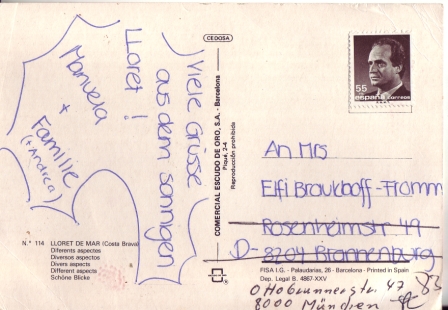 Viele Grüsse
aus dem sonnigen
LLoret !
Manuela
+
Familie
(+Andrea)
N.° 114 LLORET DE MAR (Costa Brava)
Diferents aspectes
Diversos aspectos
Divers aspects
Different aspects
Schöne Blicke
CEDOSA
COMERCIAL ESCUDO DE ORO, S.A. - Barcelona
Piqué, 2-4
Reproducción prohibida
55
españa correos
An Mrs
Elfi
Rosenheimstr. 49
D-8204 Brannenburg
FISA I.G. - Palaudarias, 26 - Barcelona - Printed in Spain
Dep. Legal B. 4867-XXV
Ottobrunnerstr. 47
8000 München
83